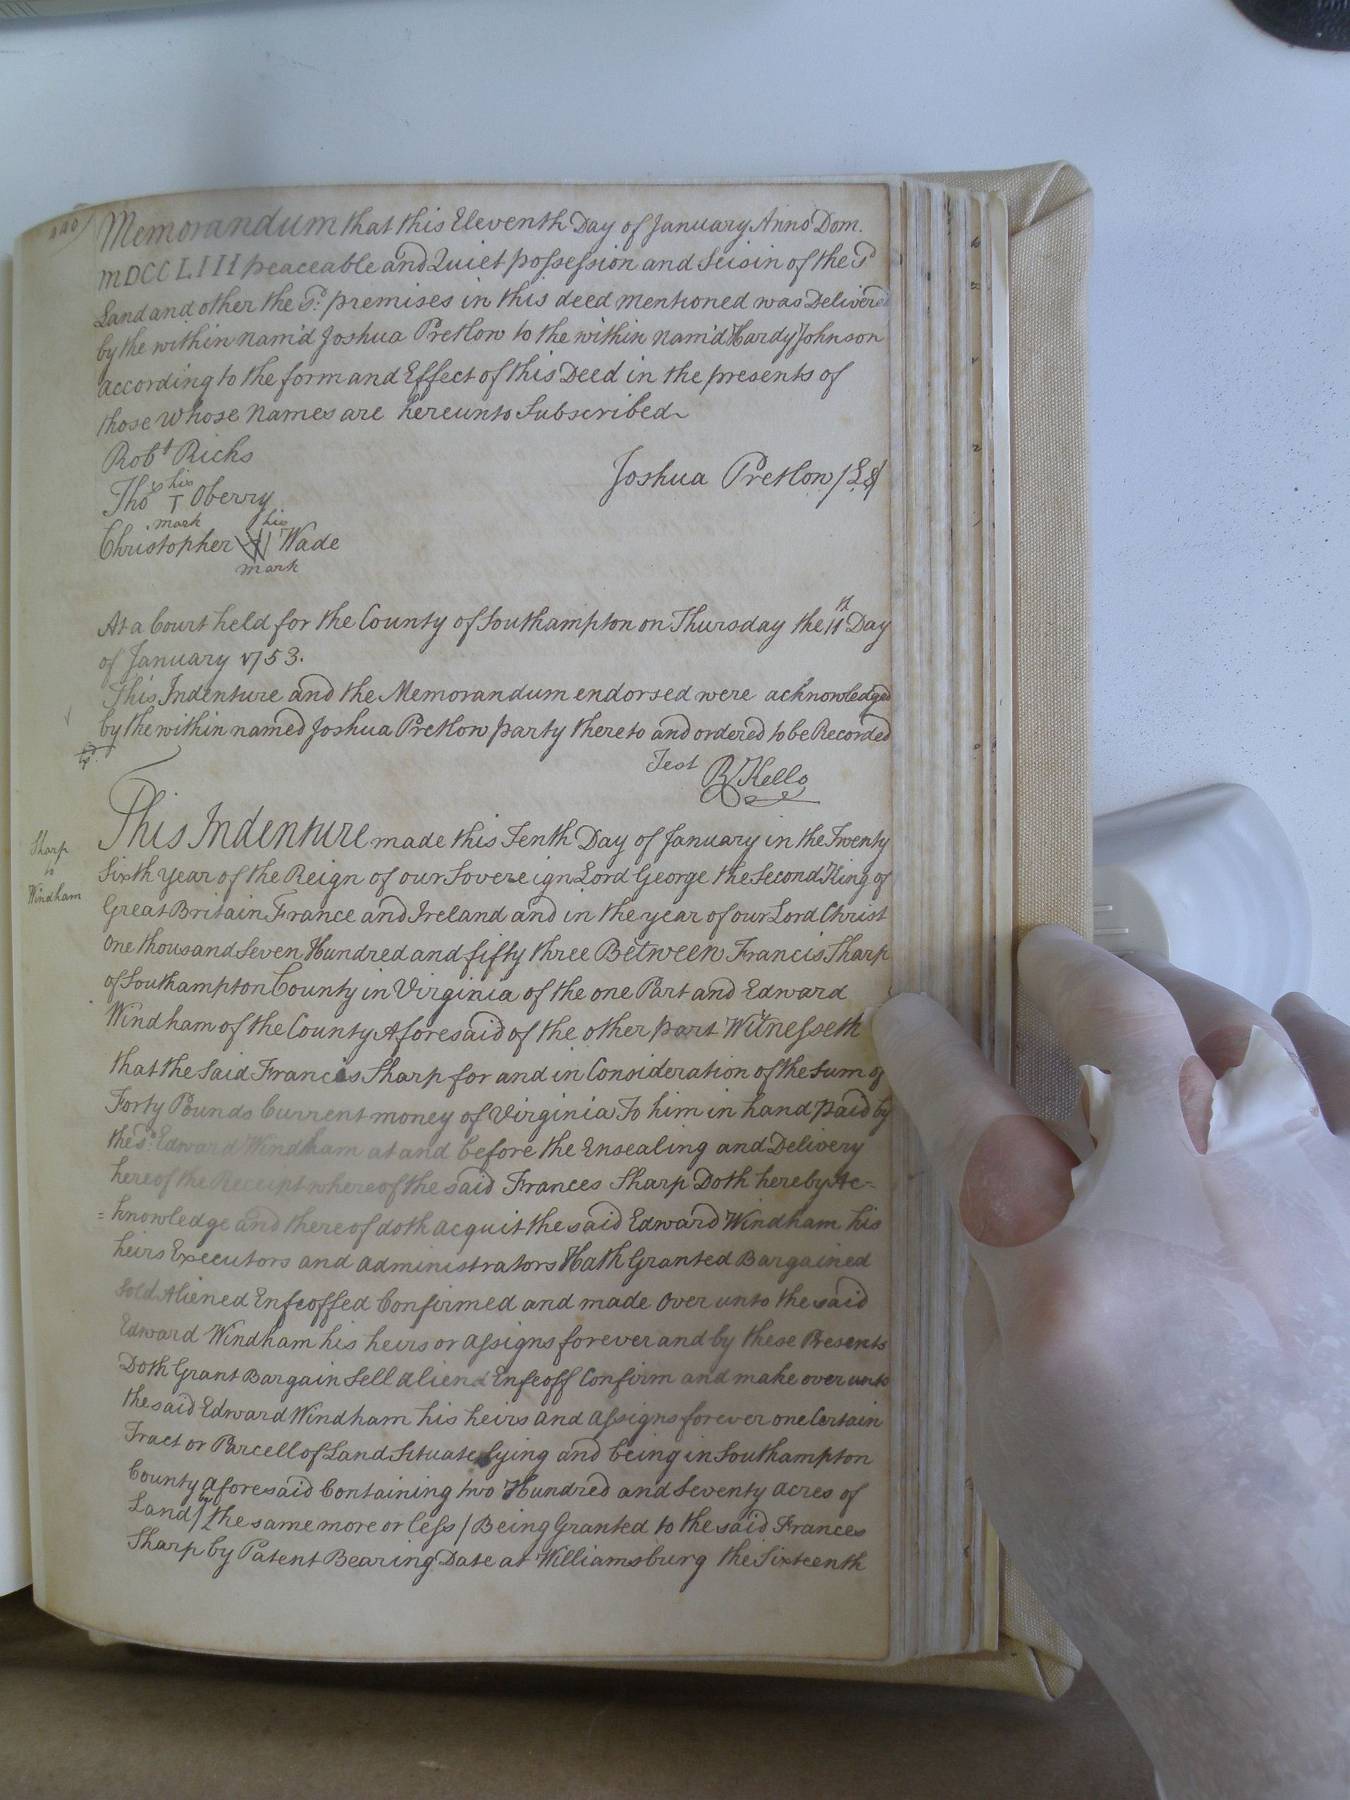 440
Memorandum that this Eleventh Day of January Anno Dom.
MDCCLIII peaceable and Quiet possession and Seisin of the Sd
Land and other the Sd. premises in this deed mentioned was Delivered
by the within nam'd Joshua Pretlow to the within nam'd Hardy Johnson
according to the form and Effect of this Deed in the presents of
those whose Names are hereunto Subscribed
Robt Ricks
Joshua Pretlow (LS)
his
Thos T Oberry
mark his
Christopher W Wade
mark
At a Court held for the County of Southampton on Thursday the 11th Day
of January 1753.
This Indenture and the Memorandum endorsed were acknowledged
by the within named Joshua Pretlow party thereto and ordered to be Recorded
Test R Kello
Sharp
to
Windham
This Indenture made this Tenth Day of January in the Twenty
Sixth year of the Reign of our Sovereign Lord George the Second King of
Great Britain France and Ireland and in the year of our Lord Christ
One thousand Seven Hundred and fifty three Between Francis Sharp
of Southampton County in Virginia of the one Part and Edward
Windham of the County Aforesaid of the other part Witnesseth
that the Said Francis Sharp for and in Consideration of the Sum of
Forty Pounds Current money of Virginia To him in hand Paid by
the sd. Edward Windham at and before the Ensealing and Delivery
hereof the Receipt whereof the said Frances Sharp Doth hereby Ac-
=knowledge and thereof doth acquit the said Edward Windham his
heirs Executors and administrators Hath Granted Bargained
Sold Aliened Enfeoffed Confirmed and made Over unto the said
Edward Windham his heirs or assigns forever and by these Presents
Doth Grant Bargain Sell aliend Enfeoff Confirm and make over unto
the said Edward Windham his heirs and assigns forever one Certain
Tract or Parcell of Land Situate lying and being in Southampton
County aforesaid Containing two Hundred and Seventy acres of
Land / be the same more or less / Being Granted to the said Frances
Sharp by Patent Bearing Date at Williamsburg the Sixteenth